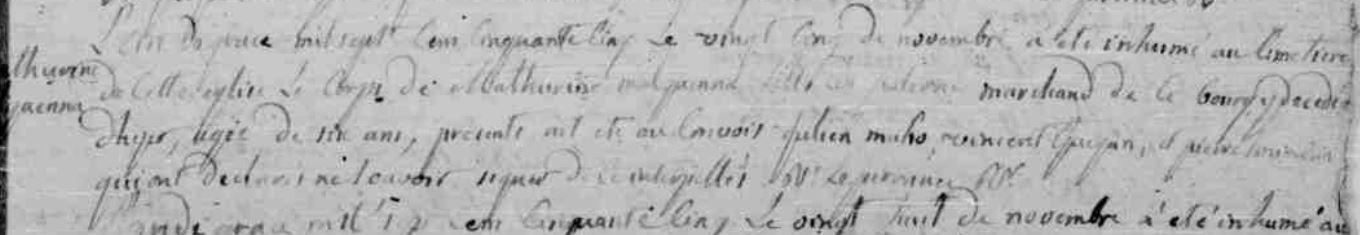 L'an de grace mil sept cent cinquante cinq Le vingt cinq de novembre a eté inhumé au Cimetiere
thurine de Cette eglise Le Corps de Mathurine marchand de Ce bourg, y decedée
d'hyer, agée de six ans, presents ont eté au Convois Julien maho, vincent et pierre
qui ont declarés ne scavoir signer de ce interpellés
an de grace mil cent Cinquante Cinq Le vingt huit de novembre a eté inhumé au